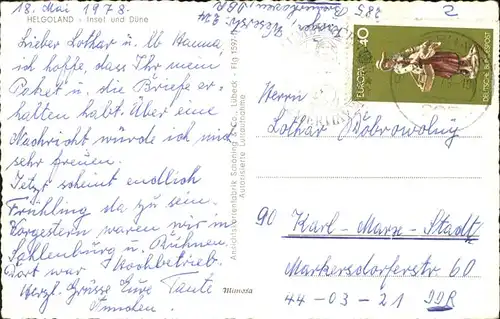 18. Mai 1978.
HELGOLAND - Insel und Düne
Lieber Lothar u. lb Hanna,
ich hoffe, dass Ihr mein
Paket u. die Briefe er-
halten habt. Über eine
Nachricht würde ich mich
sehr freuen.
Jetzt scheint endlich
Frühling da zu sein.
Vorgestern waren wir in
Sahlenburg u. Duhnen.
Dort war Hochbetrieb.
Herzl. Grüsse Eure Tante
Ännchen
Ansichtskartenfabrik Schöning & Co., Lübeck - Flg
Autorisierte Luftaufnahme
Mimosa
285
2
EUROPA
40
DEUTSCHE BUNDESPOST
Herrn
Lothar Dobrowolny
90 Karl-Marx-Stadt
Markersdorferstr. 60
44-03-21 DDR